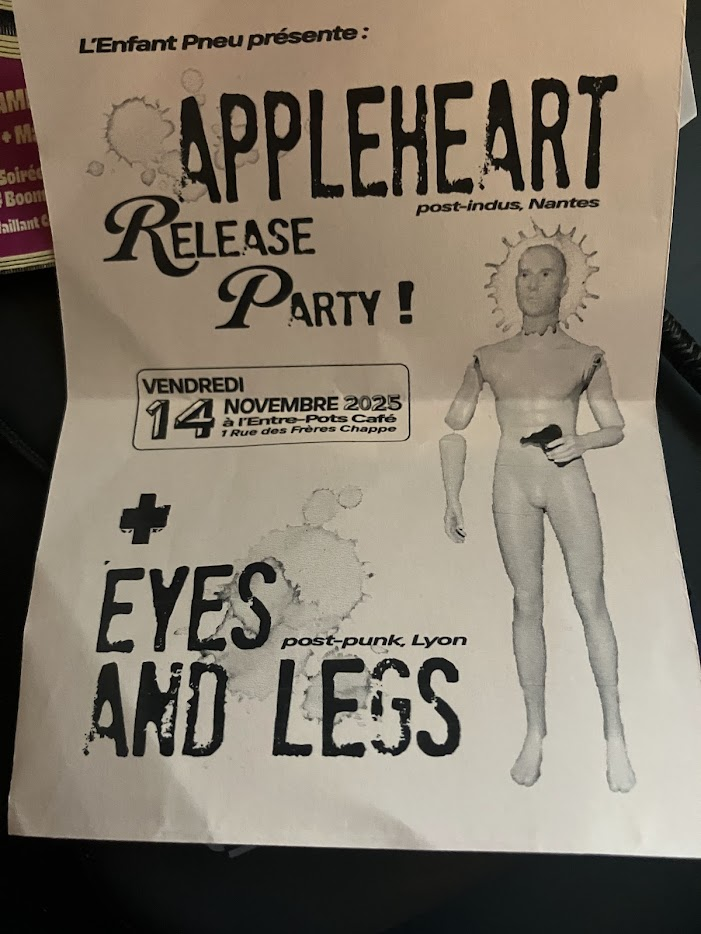 L'Enfant Pneu présente :
APPLEHEART
post-indus, Nantes
RELEASE
PARTY !
VENDREDI
14 NOVEMBRE 2025
à l'Entre-Pots Café
1 Rue des Frères Chappe
+
EYES
post-punk, Lyon
AND LEGS
AM
+ M
Soirée
Boom
aillant C